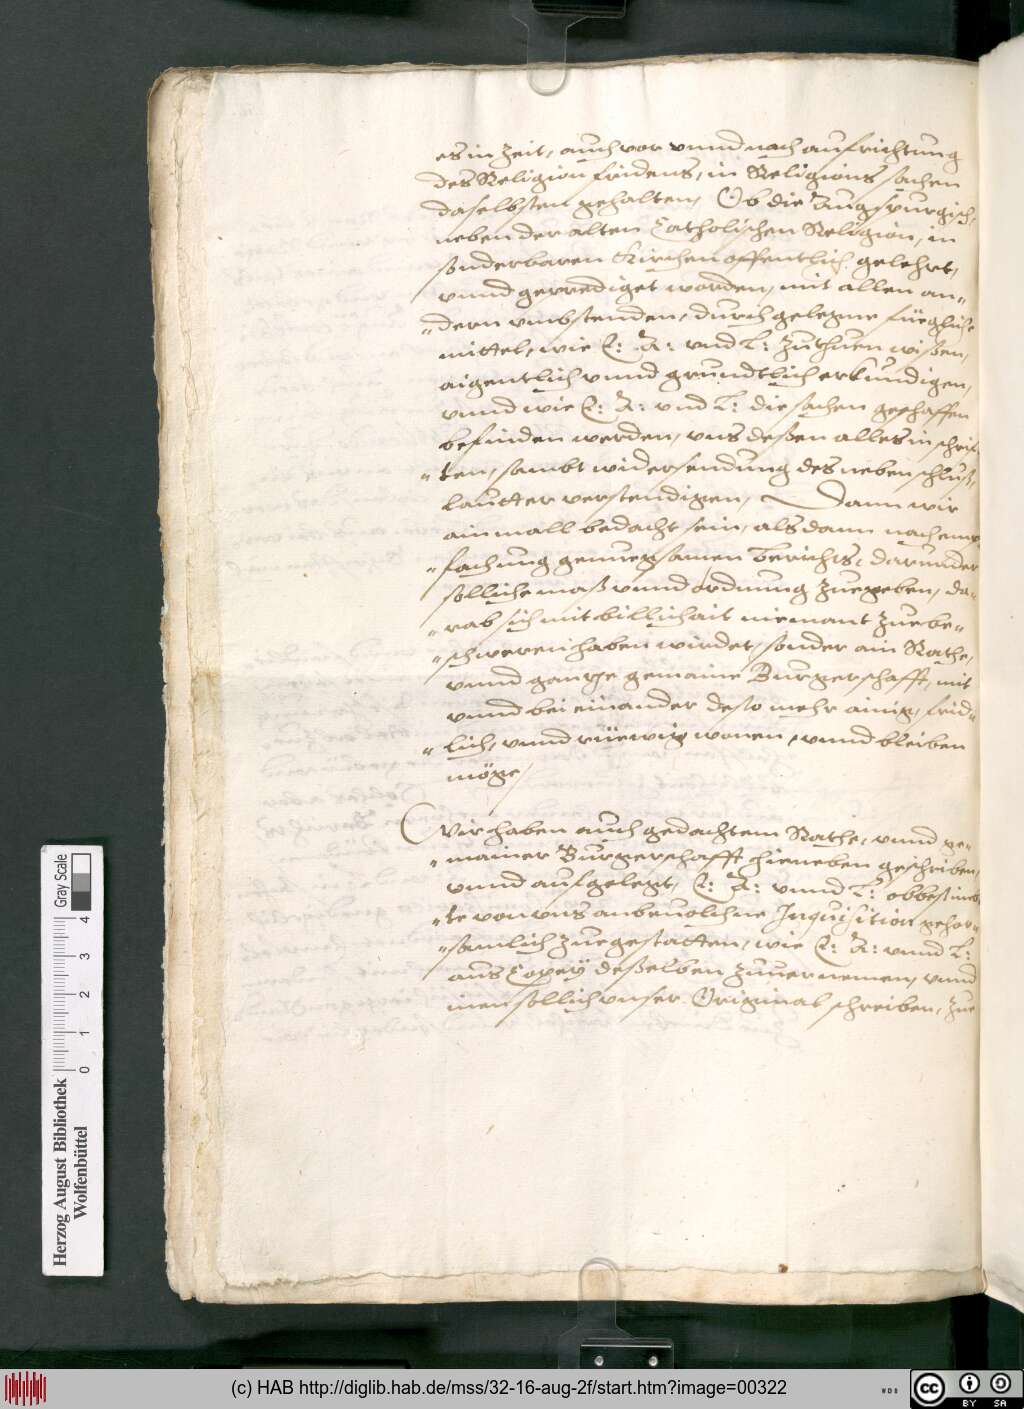 es in Zeit, auch vor vnnd nach aufrichtung
des Religion fridens, in Religions sachen
daselbsten gehalten, Ob die Augspurgisch,
neben der alten Catholischen Religion, in
sonderbaren Kirchen offentlich gelehrt,
vnnd geprediget worden, mit allen an„
„dern vmbstenden, durch gelegne füegliche
mittel, wie E: A: vnd L: zuthuen wißen,
aigentlich vnnd grundtlich erkundigen,
vnnd wie E: A: vnd L: die sachen geschaffen
befinden werden, vns deßen alles in schrif„
„ten, sambt widersendung des neben schluß,
lautter verstendigen, Dann wir
ainmall bedacht sein, als dann nach emp„
„fachung genuegsamen Berichts, darunder
solliche maß vnnd ordnung zuegeben, da„
„rab sich mit billichait niemant zue be„
„schweren haben wirdet, sonder ain Rathe,
vnnd gantze gemaine Burgerschafft, mit
vnnd bei einander desto mehr ainig, frid„
„lich, vnnd rüewig wonen, vnnd bleiben
möge,
Wir haben auch gedachtem Rathe, vnnd ge„
„mainer Burgerschafft hieneben geschriben,
vnnd aufgelegt, E: A: vnnd L: obbestimb„
„te von vns anbeuolchne Inquisition gehor„
„samlich zuegestatten, wie E: A: vnnd L:
aus Copey deßelben zuuernemen, vnnd
men sollich vnser Original schreiben, Zue
Herzog August Bibliothek
Wolfenbüttel
0 1 2 3 4
Gray Scale
(c) HAB http://diglib.hab.de/mss/32-16-aug-2f/start.htm?image=00322
WDB
CC BY SA